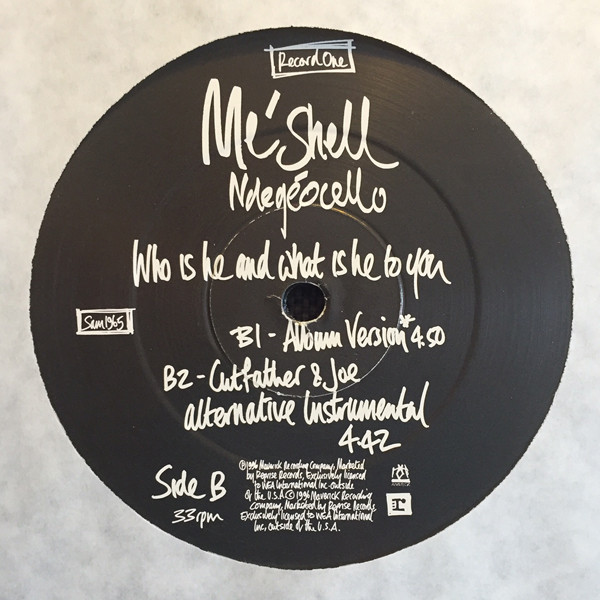 Record One
Me'Shell
Ndegéocello
Who is he and what is he to you
Sam1965
B1 - Album Version* 4.50
B2 - Cutfather & Joe
alternative Instrumental
4.42
Side B
33rpm
℗1996 Maverick Recording Company, Marketed
by Reprise Records, Exclusively licensed
to WEA International Inc. outside
of the U.S.A © 1996 Maverick Recording
Company, Marketed by Reprise Records,
Exclusively licensed to WEA International
Inc, outside of the U.S.A.